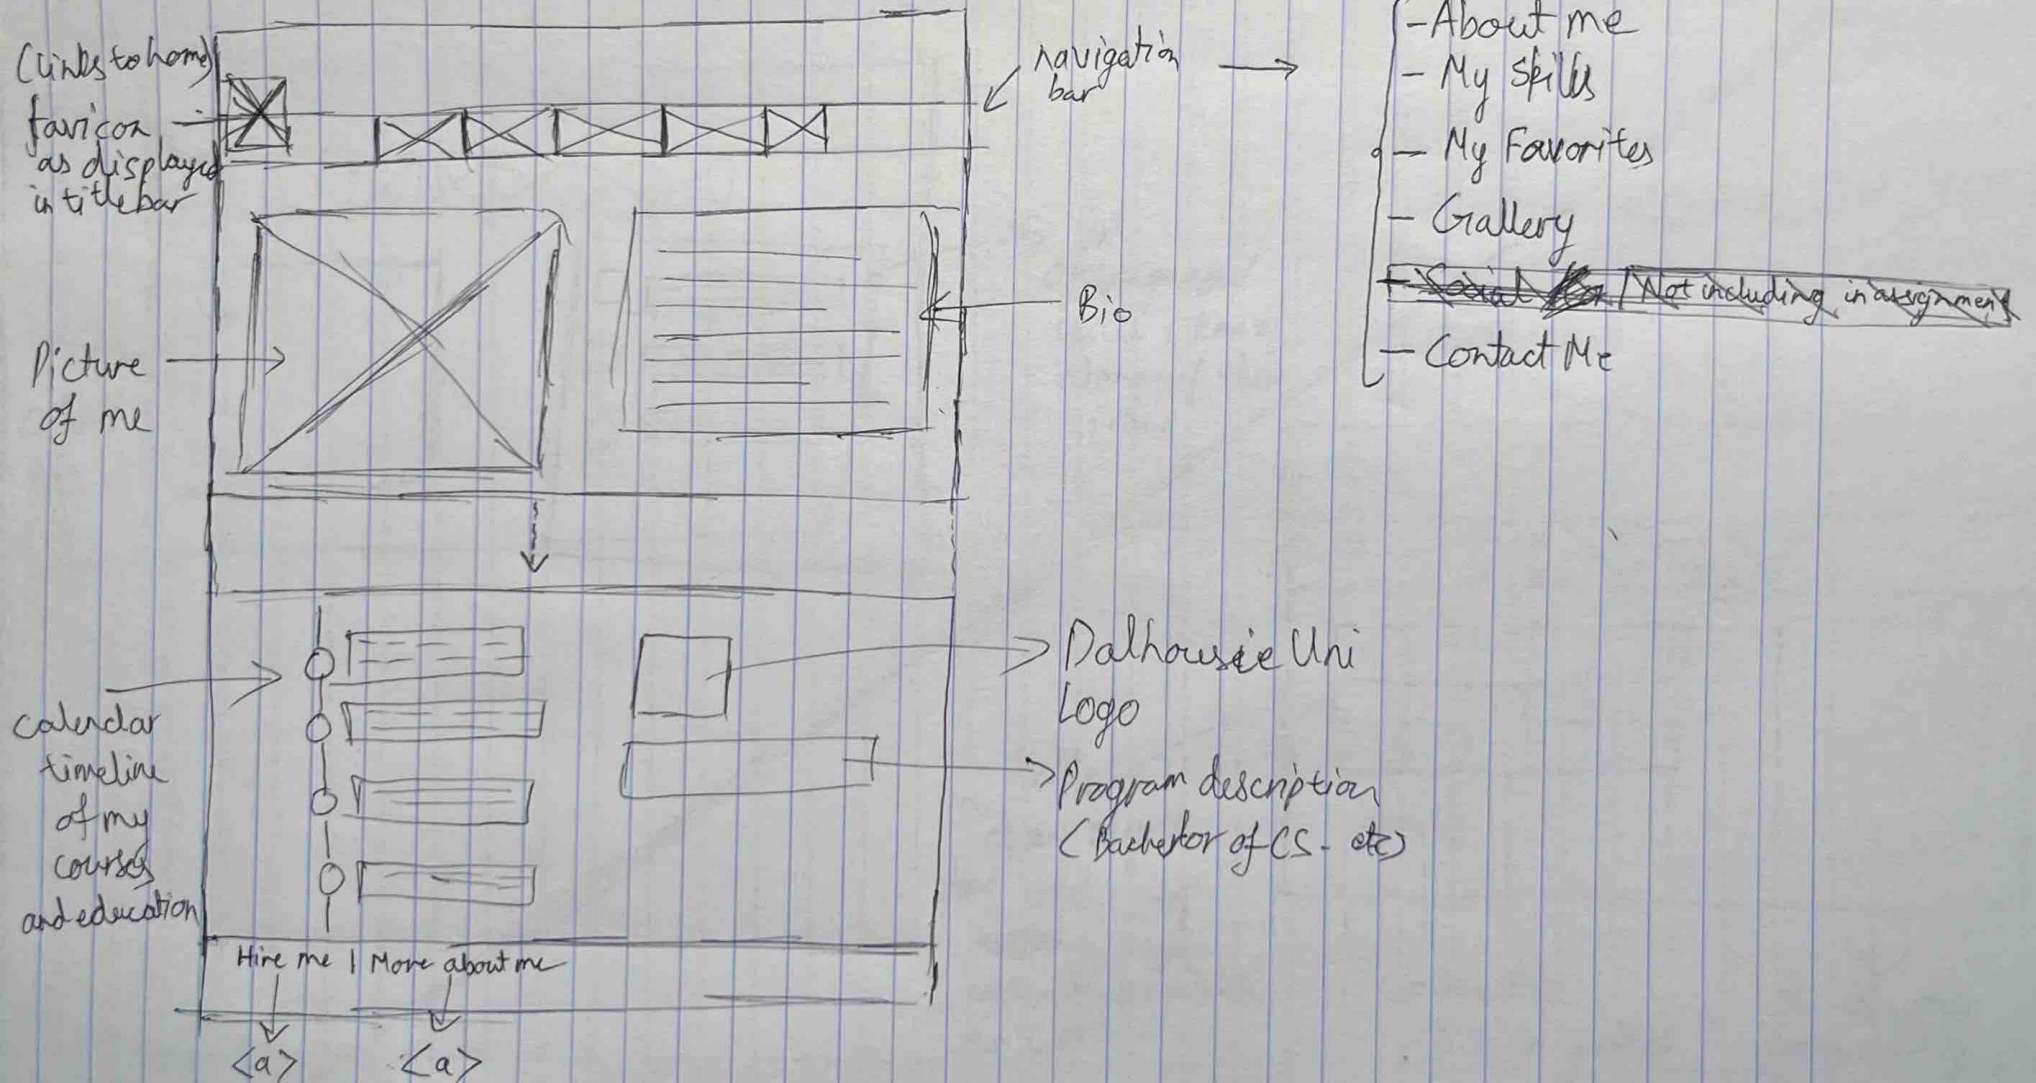 (Links to home)
favicon
as displayed
in title bar
navigation
bar
-About me
- My Skills
- My Favorites
- Gallery
- Social / Not including in assignment
- Contact Me
Picture
of me
Bio
calendar
timeline
of my
courses
and education
Dalhousie Uni
Logo
Program description
(Bachertor of CS - etc)
Hire me | More about me
<a> <a>